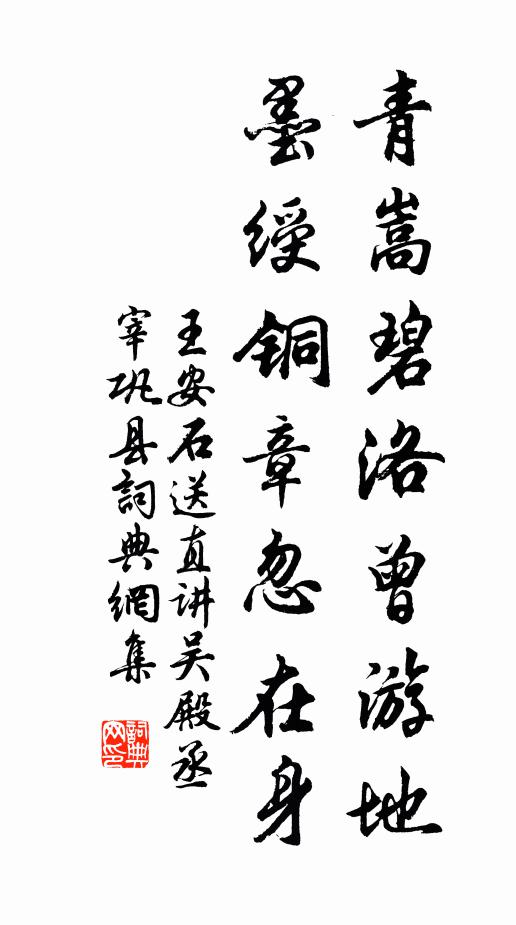 青嵩碧洛曾游地
墨绶铜章忽在身
王安石送直讲吴殿丞
宰巩县詞典網集
詞典
网印